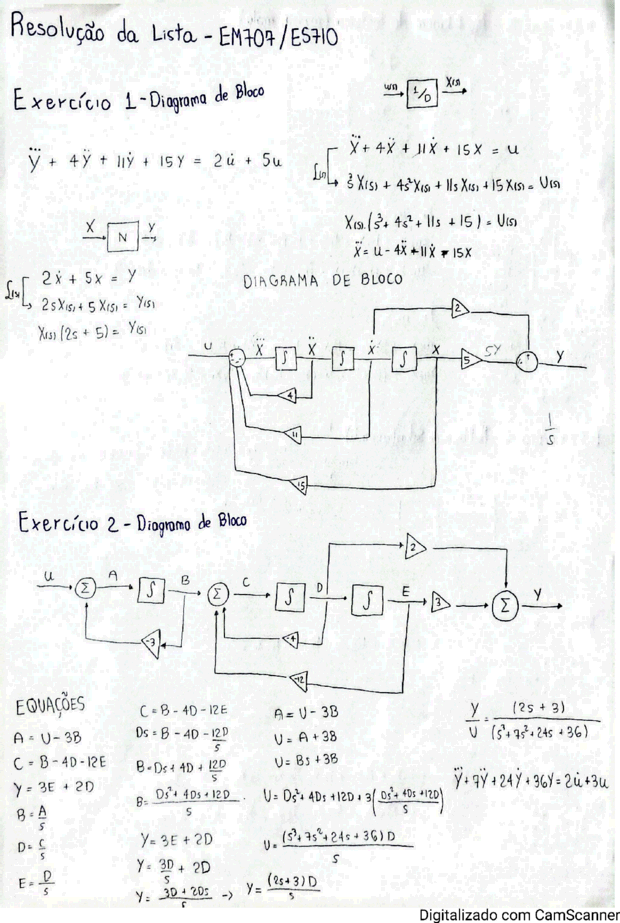 Resolução da Lista - EM707/ES710
Exercício 1 - Diagrama de Bloco
U(s) 1/D X(s)
Ÿ̇ + 4Ÿ + 11ẏ + 15Y = 2u̇ + 5u
X N Y
L(s) 2ẋ + 5x = Y
2sX(s) + 5X(s) = Y(s)
X(s)(2s + 5) = Y(s)
L(s) Ẍ̇ + 4Ẍ + 11Ẋ + 15X = u
s³X(s) + 4s²X(s) + 11sX(s) + 15X(s) = U(s)
X(s).(s³ + 4s² + 11s + 15) = U(s)
DIAGRAMA DE BLOCO
2
U Ẍ̇ ∫ Ẍ ∫ Ẋ ∫ X 5 5Y Y
4
11
15
1/s
Exercício 2 - Diagrama de Bloco
2
U Σ A ∫ B Σ C ∫ D ∫ E 3 Σ Y
-3
-4
-12
EQUAÇÕES
A = U - 3B
C = B - 4D - 12E
Y = 3E + 2D
B = A/s
D = C/s
E = D/s
C = B - 4D - 12E
Ds = B - 4D - 12D/s
B = Ds + 4D + 12D/s
B = Ds² + 4Ds + 12D/s
Y = 3E + 2D
Y = 3D/s + 2D
Y = 3D + 2Ds/s -> Y = (2s+3)D/s
A = U - 3B
U = A + 3B
U = Bs + 3B
U = Ds² + 4Ds + 12D + 3(Ds² + 4Ds + 12D/s)
U = (s³ + 7s² + 24s + 36)D/s
Y/U = (2s + 3)/(s³ + 7s² + 24s + 36)
Ÿ̇ + 7Ÿ + 24Ẏ + 36Y = 2u̇ + 3u
Digitalizado com CamScanner